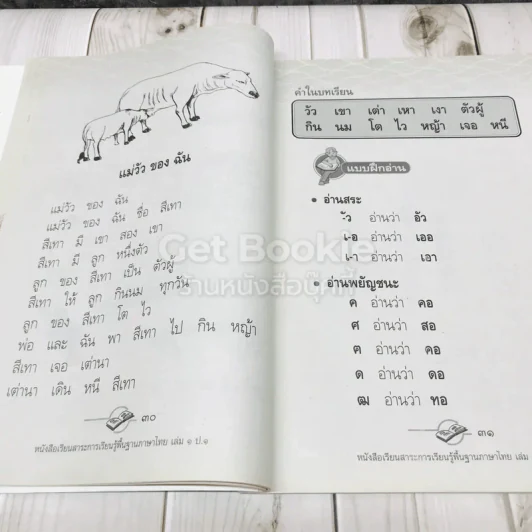 แม่วัว ของ ฉัน
แม่วัว ของ ฉัน
แม่วัว ของ ฉัน ชื่อ สีเทา
สีเทา มี เขา สอง เขา
สีเทา มี ลูก หนึ่งตัว
ลูก ของ สีเทา เป็น ตัวผู้
สีเทา ให้ ลูก กินนม ทุกวัน
ลูก ของ สีเทา โต ไว
พ่อ และ ฉัน พา สีเทา ไป กิน หญ้า
สีเทา เจอ เต่านา
เต่านา เดิน หนี สีเทา
๓๐
หนังสือเรียนสาระการเรียนรู้พื้นฐานภาษาไทย เล่ม ๑ ป.๑
คำในบทเรียน
วัว เขา เต่า เหา เงา ตัวผู้
กิน นม โต ไว หญ้า เจอ หนี
แบบฝึกอ่าน
• อ่านสระ
-ัว อ่านว่า อัว
เ-อ อ่านว่า เออ
เ-า อ่านว่า เอา
• อ่านพยัญชนะ
ค อ่านว่า คอ
ศ อ่านว่า สอ
ฅ อ่านว่า คอ
ด อ่านว่า ดอ
ฒ อ่านว่า ทอ
๓๑
หนังสือเรียนสาระการเรียนรู้พื้นฐานภาษาไทย เล่ม
Get Bookie
ร้านหนังสือบุ๊กกี้